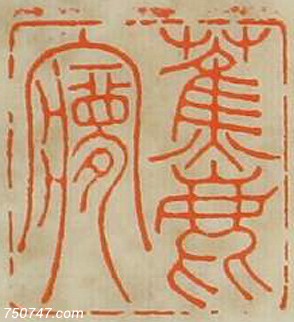 蕉鹿
㝱
750747.com